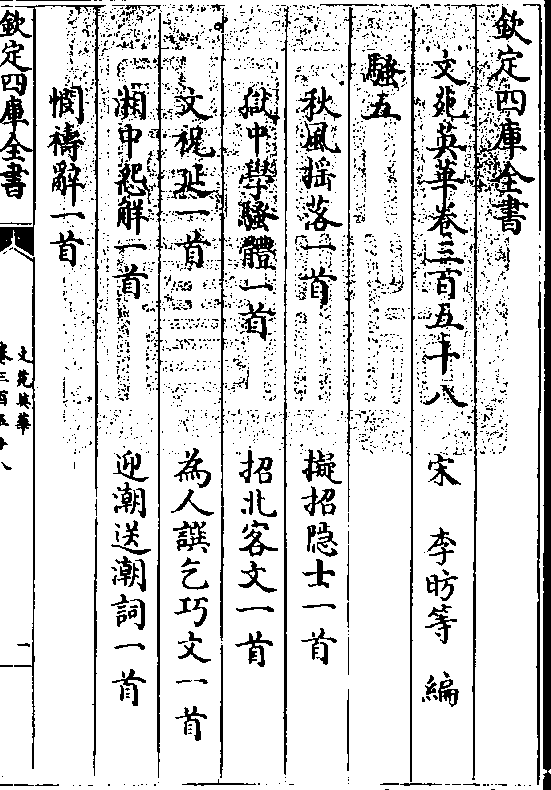 欽定四庫全書
文苑英華卷三百五十八　宋　李昉等　編
騷五
秋風揺落一首　擬招隐士一首
獄中學騷體一首　招北客文一首
文祝延一首　為人譔乞巧文一首
湘中怨解一首　迎潮送潮詞一首
憫禱辭一首
欽定四庫全書
文苑英華
卷三百五十八
一